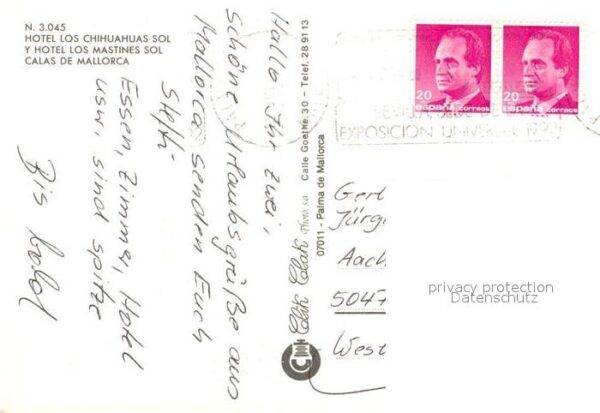 N. 3.045
HOTEL LOS CHIHUAHUAS SOL
Y HOTEL LOS MASTINES SOL
CALAS DE MALLORCA
Hallo Ihr zwei,
schöne Urlaubsgrüße aus
Mallorca senden Euch
Steffi
Essen, Zimmer, Hotel
usw. sind spitze
Bis bald
Clik Clak Photo sa Calle Goethe, 30 - Telef. 28 91 13
07011 - Palma de Mallorca
20
españa correos
20
españa correos
SEVILLA
EXPOSICION UNIVERSAL 1992
Gert
Jürg
Aach
5047
West
privacy protection
Datenschutz